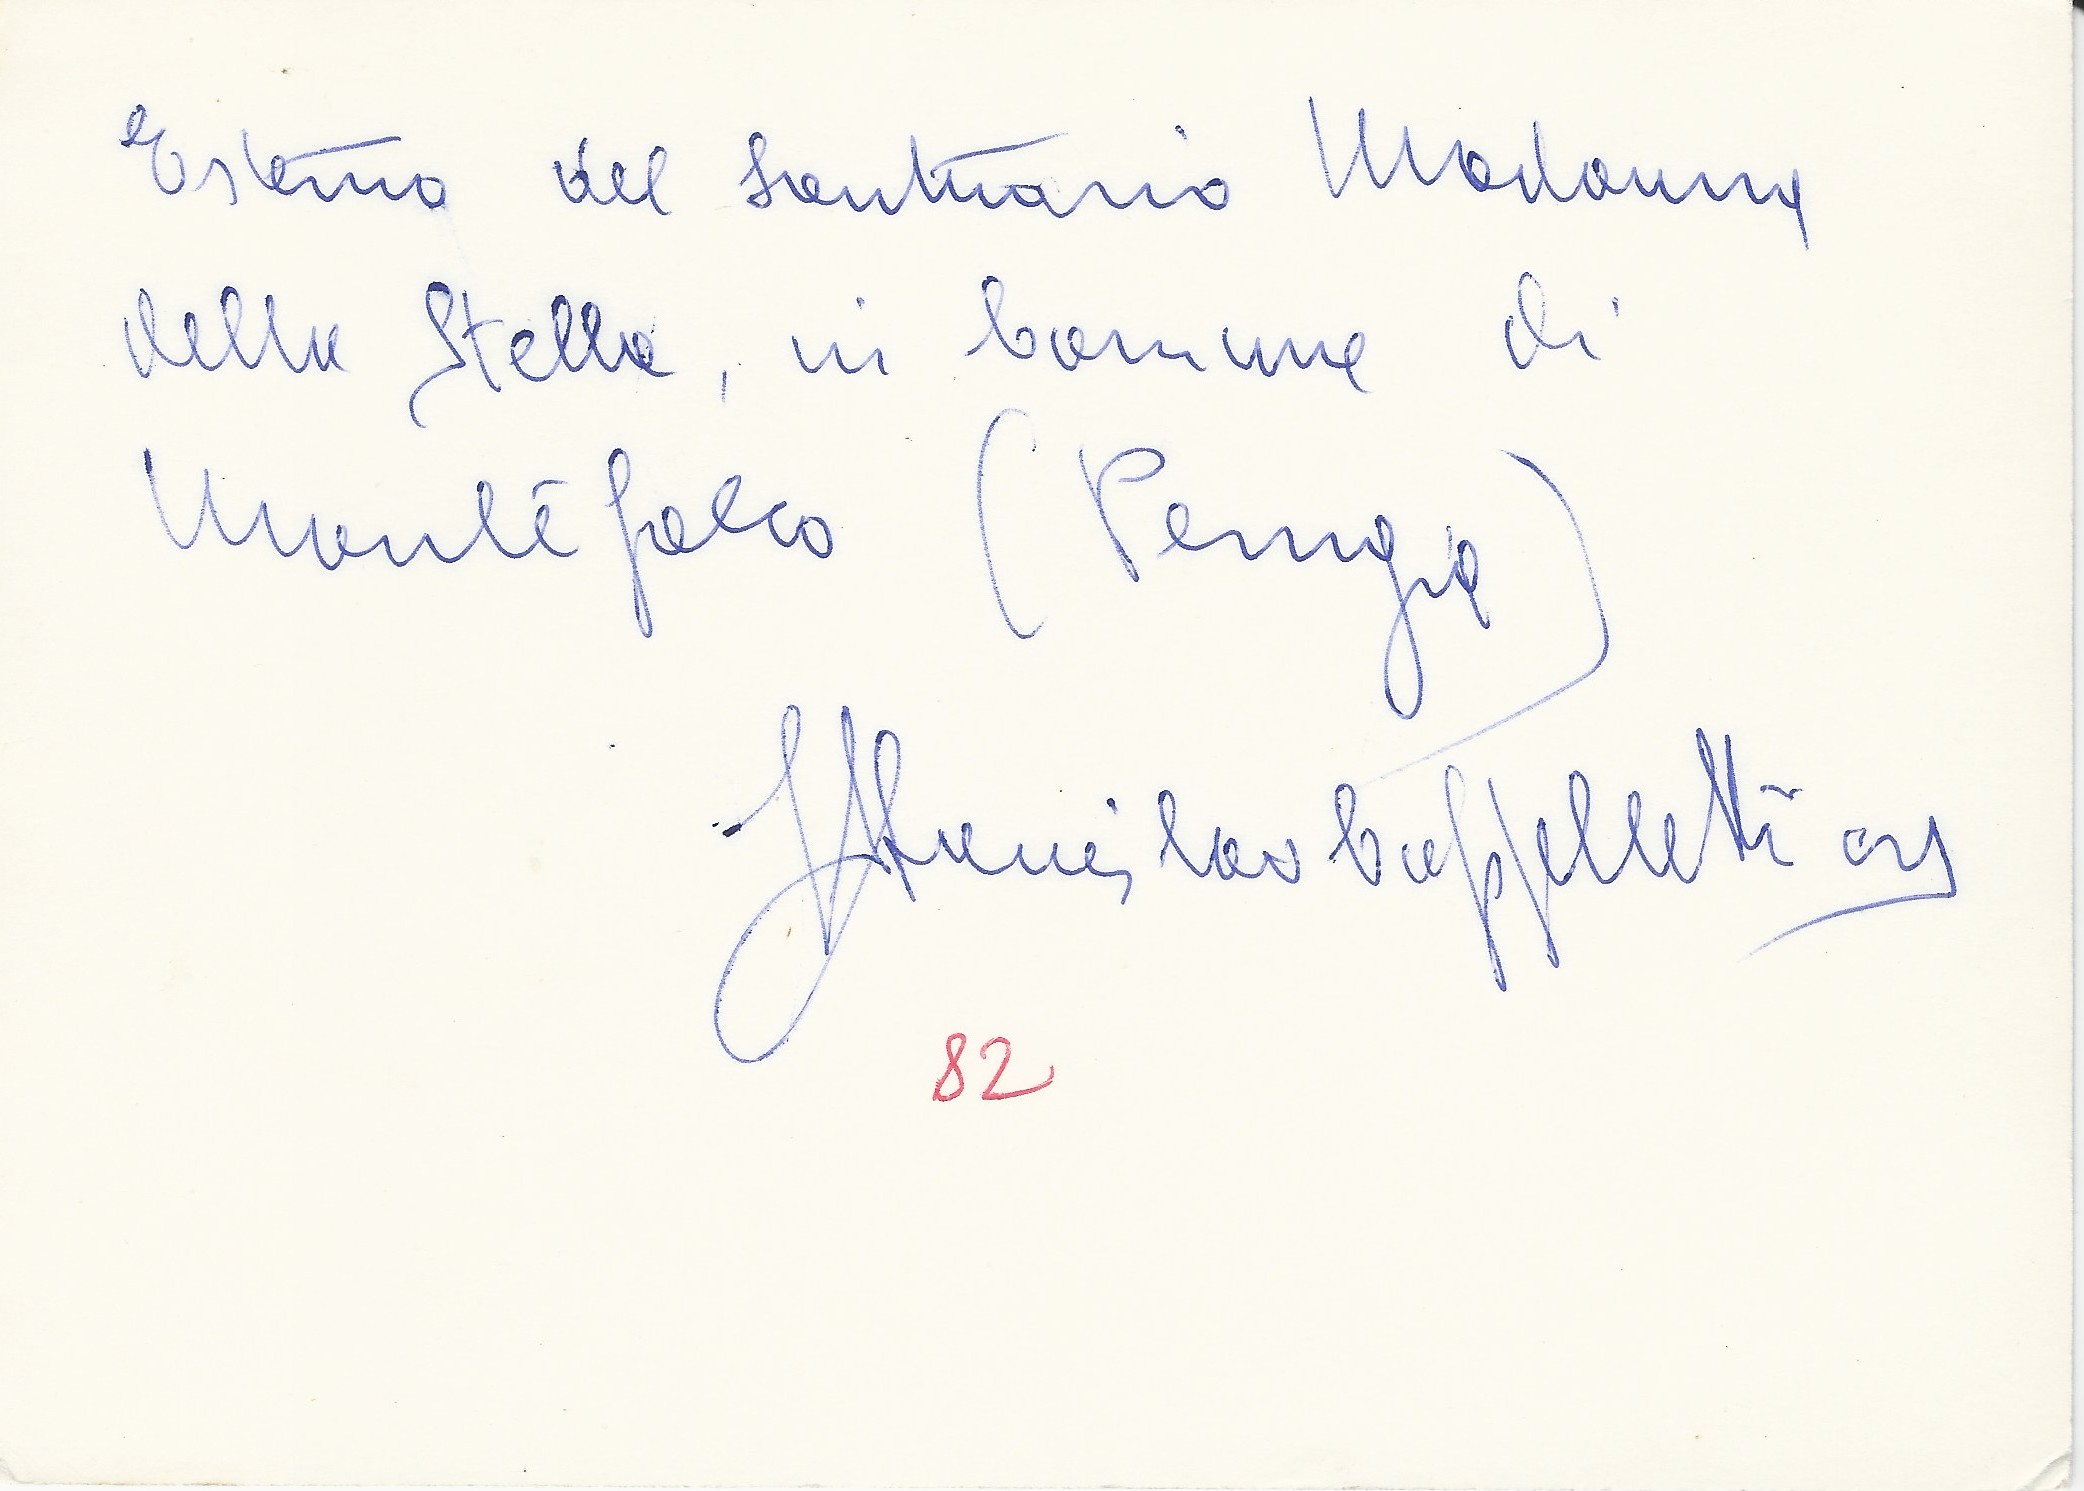 Esterno del Santuario Madonna
della Stella, in Comune di
Montefalco (Perugia)
Stanislao Cappelletti
82